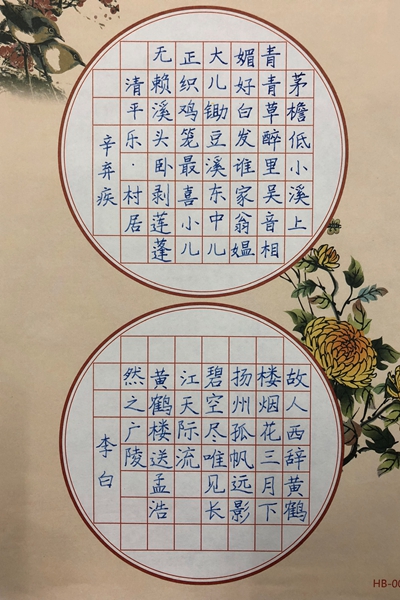 茅檐低小溪上
青青草醉里吴音相
媚好白发谁家翁媪
大儿锄豆溪东中儿
正织鸡笼最喜小儿
无赖溪头卧剥莲蓬
清平乐·村居
辛弃疾
故人西辞黄鹤
楼烟花三月下
扬州孤帆远影
碧空尽唯见长
江天际流
黄鹤楼送孟浩
然之广陵
李白